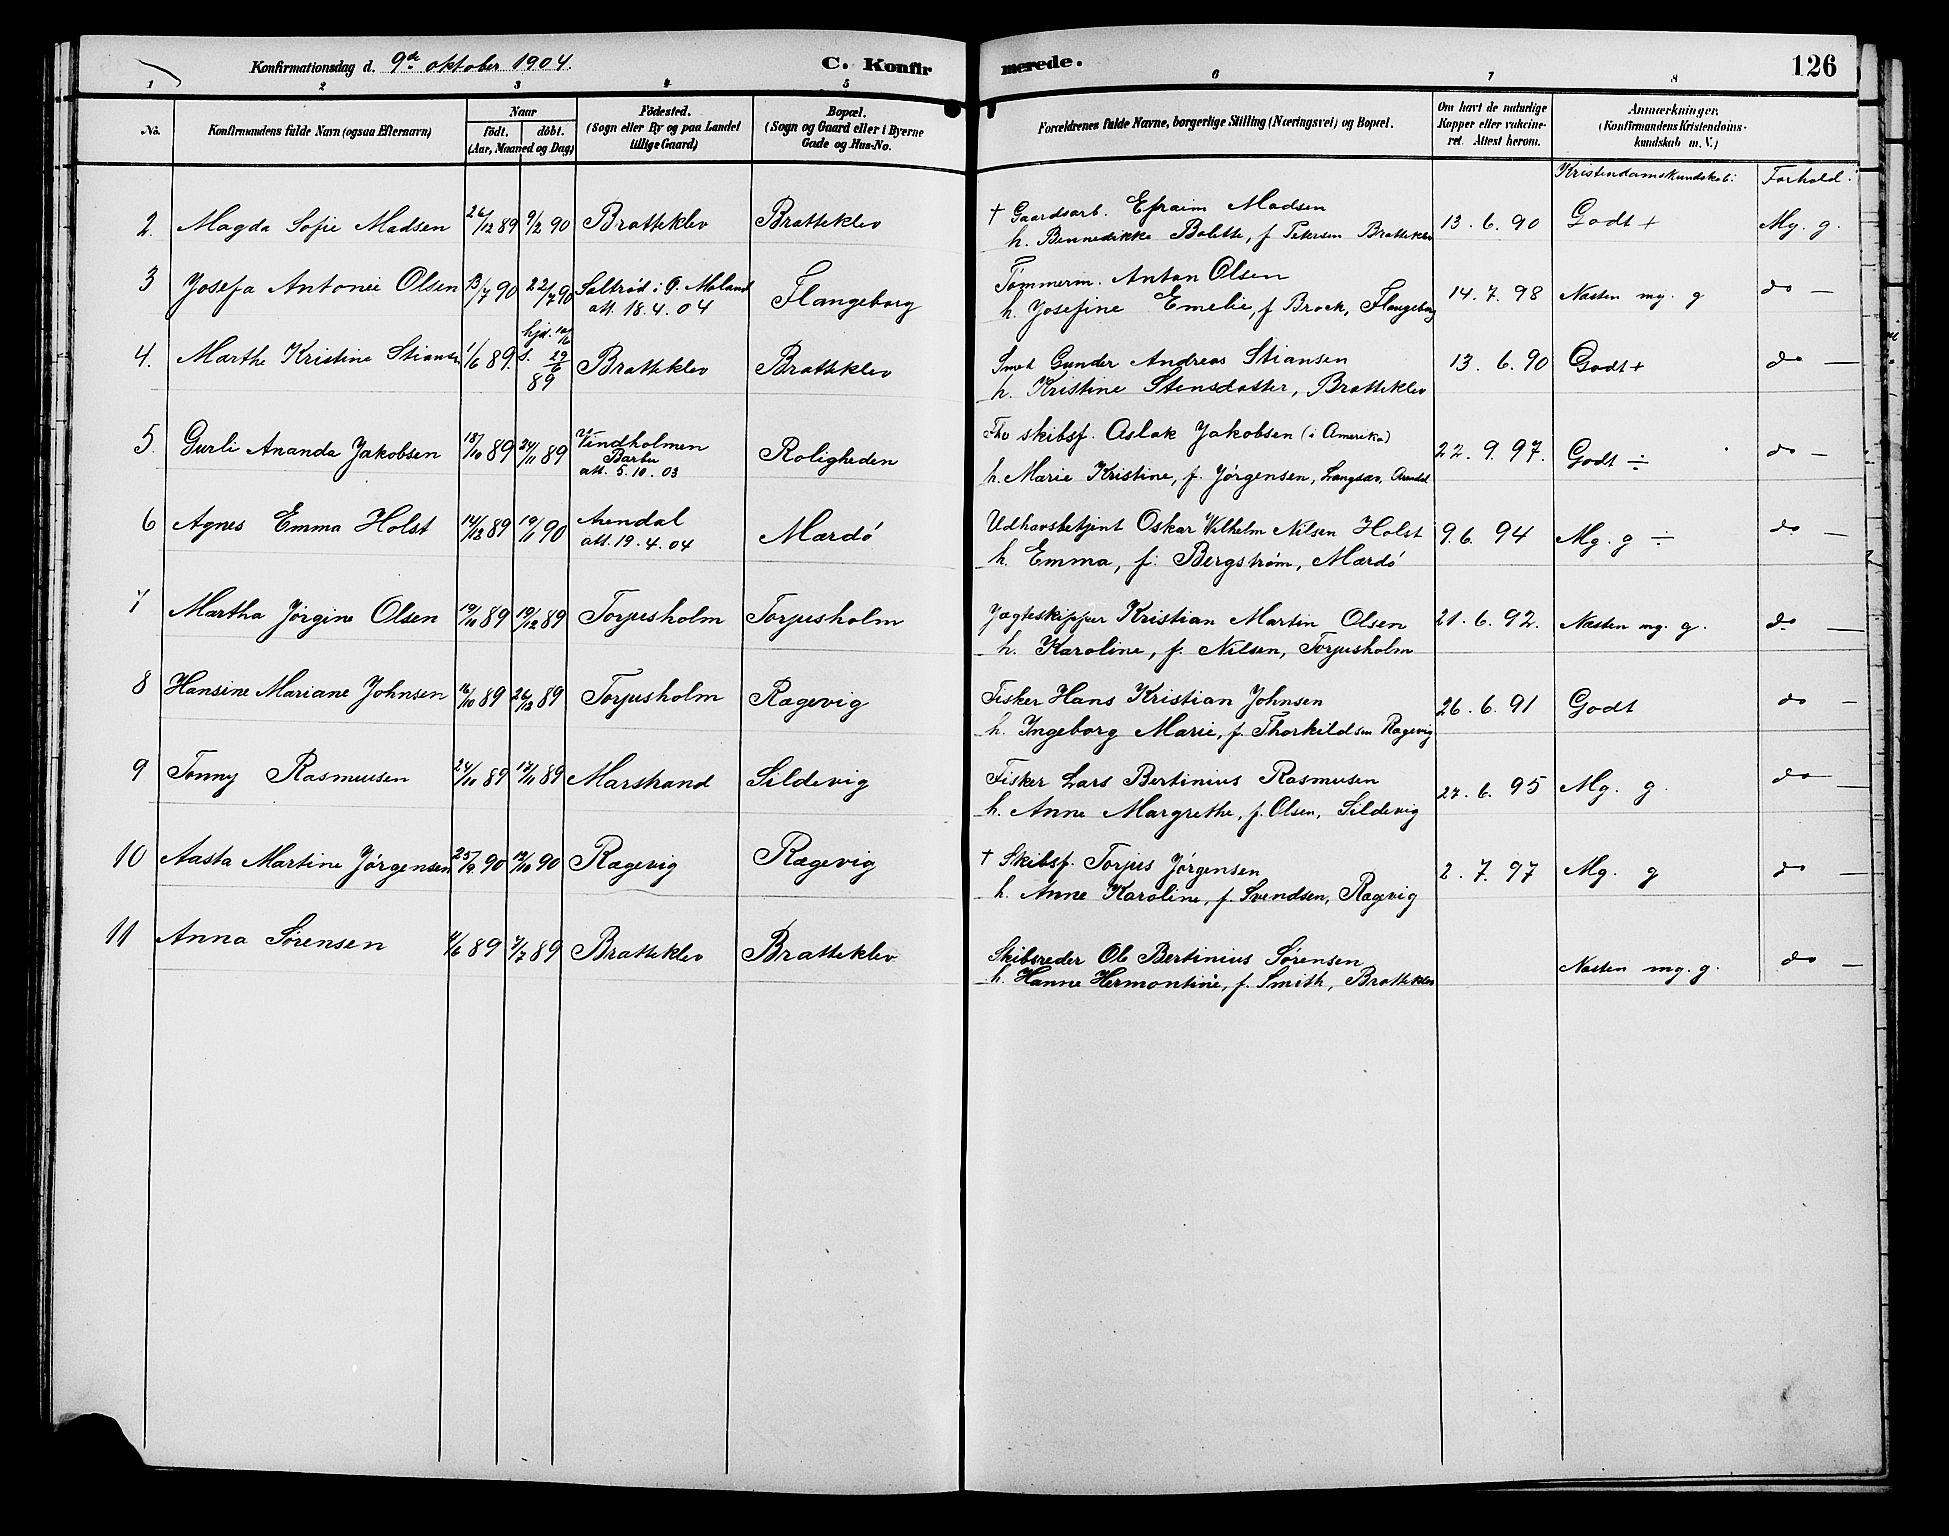 Konfirmationsdag d. 9de oktober 1904. C. Konfir
merede. 126
1 2 3 4 5 6 7 8
No.
Konfirmandens fulde Navn (ogsaa Efternavn)
Naar
födt. döbt.
(Aar, Maaned og Dag)
Födested.
(Sogn eller By og paa Landet
tillige Gaard)
Bopæl.
(Sogn og Gaard eller i Byerne
Gade og Hus-No.
Forældrenes fulde Navne, borgerlige Stilling (Næringsvei) og Bopæl.
Om havt de naturlige
Kopper eller vakcine-
ret. Attest herom.
Anmærkninger.
(Konfirmandens Kristendoms-
kundskab m. V.)
Kristendomskundskab: Forhold.
2. Magda Sofie Madsen 26/12 89 9/2 90 Bratteklev Bratteklev
† Gaardsarb. Efraim Madsen
h. Bennedikke Bolette, f Petersen Bratteklev 13. 6. 90 Godt + Mg. g.
3 Josefa Antonie Olsen 13/7 90 22/7 90 Saltrød i Ø. Moland
att. 18. 4. 04 Flangeborg
Tømmerm. Anton Olsen
h. Josefine Emelie, f Brock, Flangeborg 14. 7. 98 Næsten mg. g do —
4. Marthe Kristine Stiansen 1/6 89. hjd. 10/6
s. 29/6
89 Bratteklev Bratteklev
Smed Gunder Andreas Stiansen
h. Kristine Stensdatter, Bratteklev 13. 6. 90 Godt + do —
5. Gurli Ananda Jakobsen 18/10 89 24/11 89 Vindholmen
Barbu
att. 5. 10. 03 Roligheden
Fhv skibsf. Aslak Jakobsen (i Amerika)
h. Marie Kristine, f. Jørgensen, Langsæv, Arendal 22. 9. 97. Godt ÷ do —
6 Agnes Emma Holst 14/12 89 19/1 90 Arendal
att. 19. 4. 04 Mærdö
Udhavsbetjent Oskar Vilhelm Nilsen Holst
h. Emma, f. Bergstrøm, Mærdö 9. 6. 94 Mg. g ÷ do —
7 Martha Jørgine Olsen 19/10 89 19/12 89 Torjusholm Torjusholm
Jægteskipper Kristian Martin Olsen
h. Karoline, f. Nilsen, Torjusholm 21. 6. 92. Næsten mg. g. do —
8 Hansine Mariane Johnsen 16/10 89 26/12 89 Torjusholm Rægevig
Fisker Hans Kristian Johnsen
h. Ingeborg Marie, f. Thorkildsen Rægevig 26. 6. 91 Godt do —
9 Tonny Rasmussen 24/10 89 17/11 89 Marstrand Sildevig
Fisker Lars Bertinius Rasmusen
h. Anne Margrethe, f. Olsen, Sildevig 27. 6. 95 Mg. g. do —
10 Aasta Martine Jørgensen 25/9 90 19/10 90 Rægevig Rægevig
† Skibsf. Torjus Jørgensen
h. Anne Karoline, f. Svendsen, Rægevig 2. 7. 97 Mg. g do —
11 Anna Sørensen 4/6 89 7/7 89 Bratteklev Bratteklev
Skibsreder Ole Bertinius Sørensen
h. Hanne Hermontine, f. Smith, Bratteklev Næsten mg. g. do —